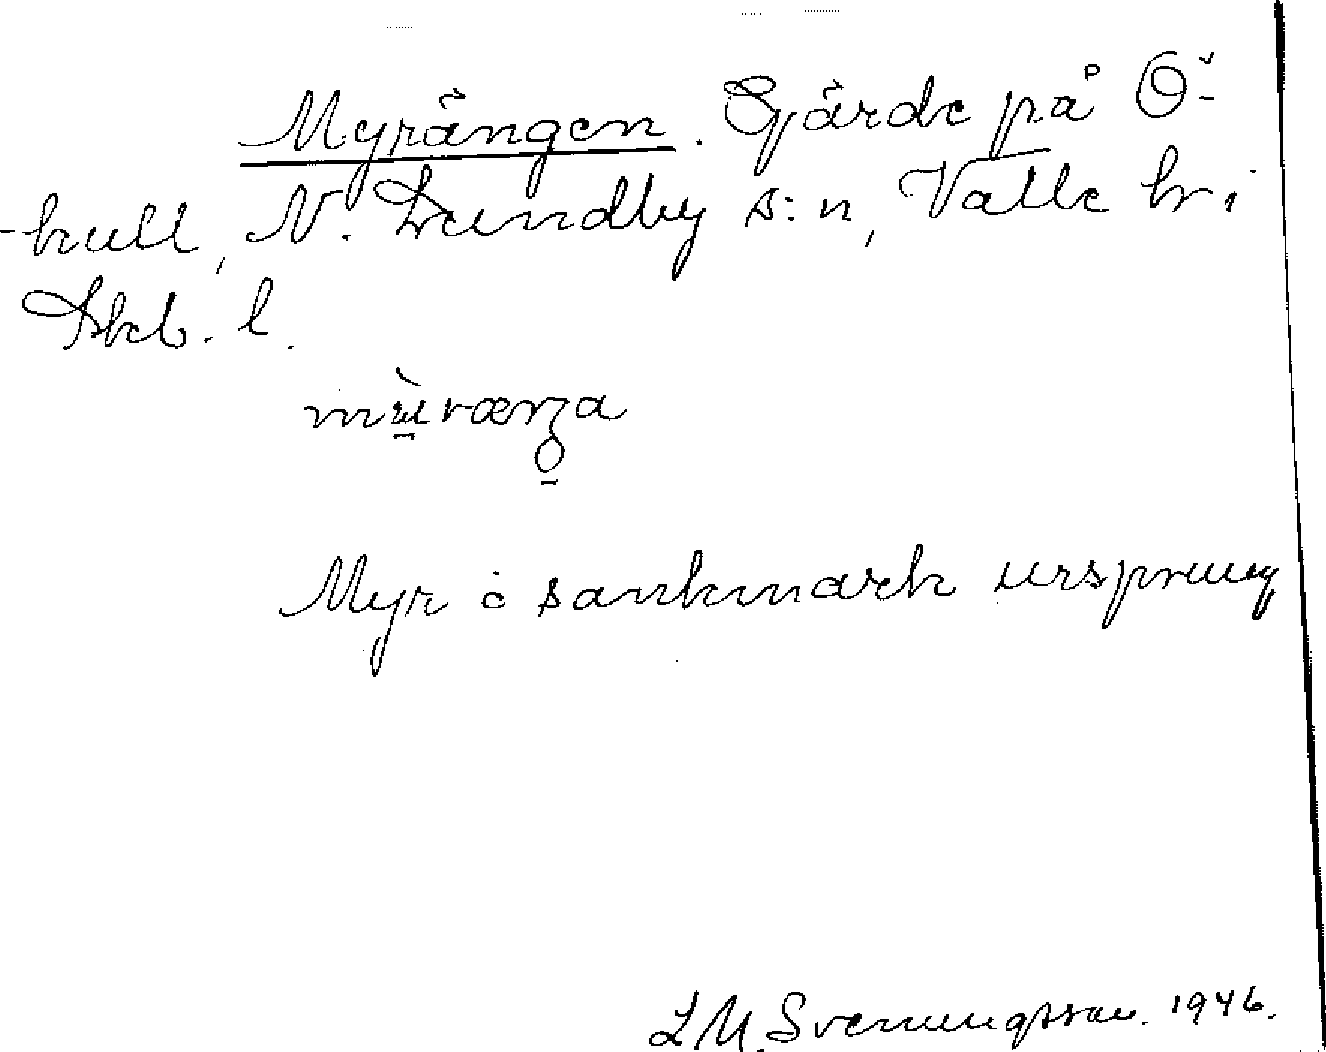 Myrängen. Gärde på Ö-
-kull, N. Lundby s:n, Valle hr i
Skb. l.
Myr o sankmark ursprung
L M. Svenungsson. 1946.